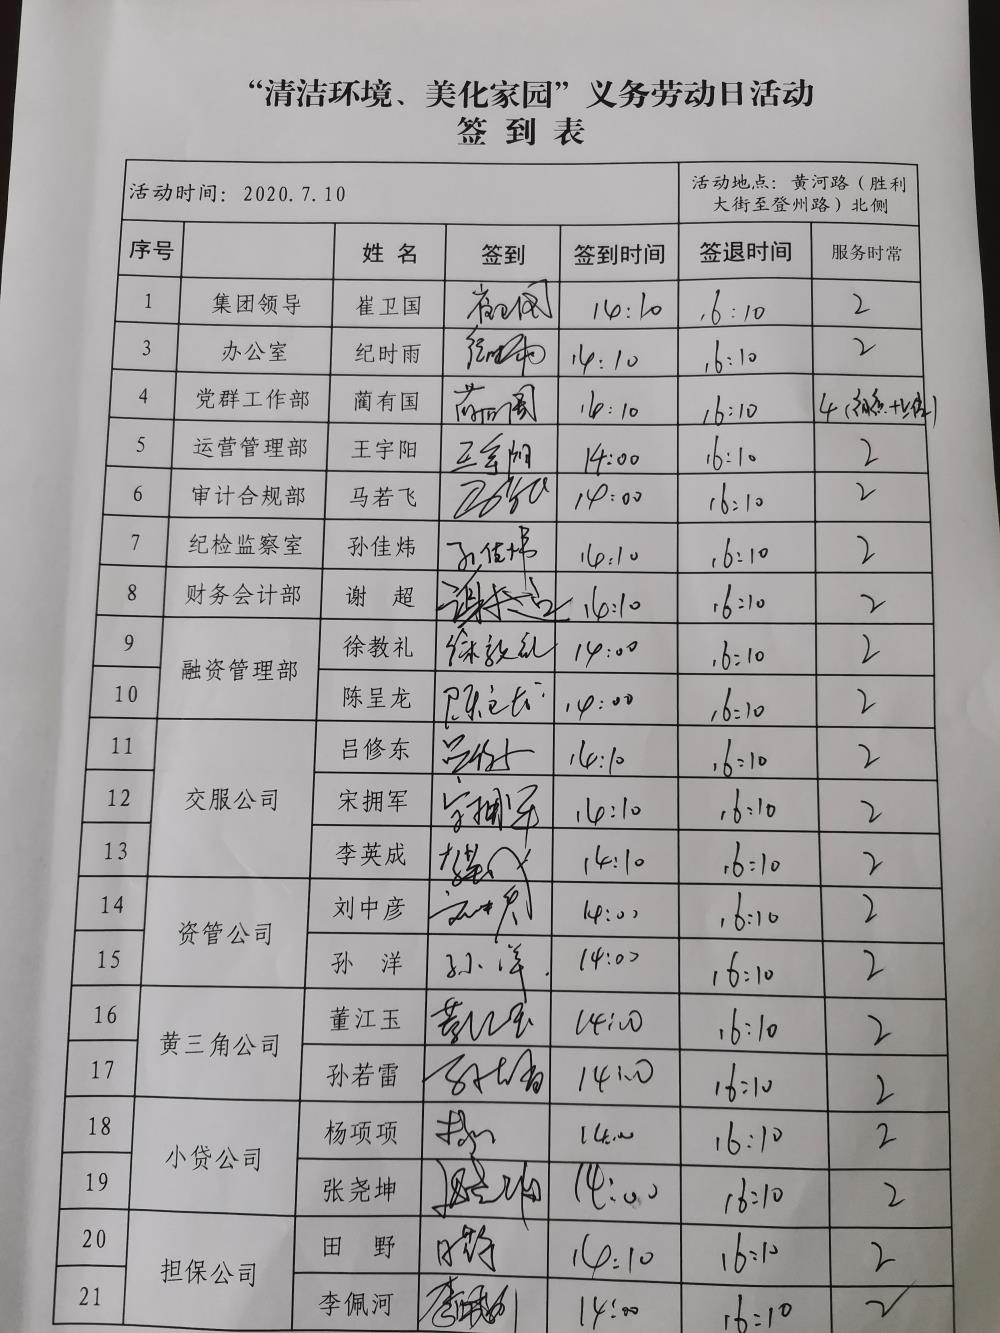 “清洁环境、美化家园”义务劳动日活动
签到表
活动时间：2020.7.10 活动地点：黄河路（胜利
大街至登州路）北侧
序号 姓名 签到 签到时间 签退时间 服务时常
1 集团领导 崔卫国 崔卫国 14:10 16:10 2
3 办公室 纪时雨 纪时雨 14:10 16:10 2
4 党群工作部 蔺有国 蔺有国 14:10 16:10 4
5 运营管理部 王宇阳 王宇阳 14:00 16:10 2
6 审计合规部 马若飞 马若飞 14:00 16:10 2
7 纪检监察室 孙佳炜 孙佳炜 14:10 16:10 2
8 财务会计部 谢超 谢超 14:10 16:10 2
9 融资管理部 徐教礼 徐教礼 14:00 16:10 2
10 陈呈龙 陈呈龙 14:00 16:10 2
11 交服公司 吕修东 吕修东 14:10 16:10 2
12 宋拥军 宋拥军 14:10 16:10 2
13 李英成 李英成 14:10 16:10 2
14 资管公司 刘中彦 刘中彦 14:00 16:10 2
15 孙洋 孙洋 14:00 16:10 2
16 黄三角公司 董江玉 董江玉 14:00 16:10 2
17 孙若雷 孙若雷 14:00 16:10 2
18 小贷公司 杨项项 14:00 16:10 2
19 张尧坤 张尧坤 14:00 16:10 2
20 担保公司 田野 田野 14:10 16:10 2
21 李佩河 李佩河 14:00 16:10 2